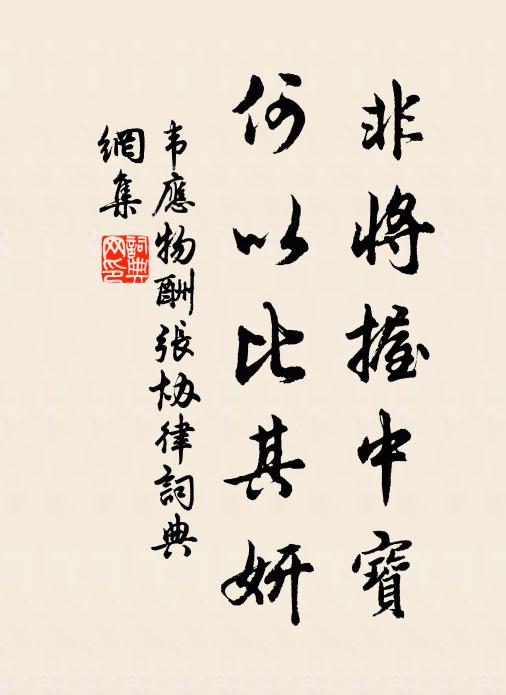 非將握中寶
何以比其妍
韦應物酬張协律詞典
網集
詞典网印